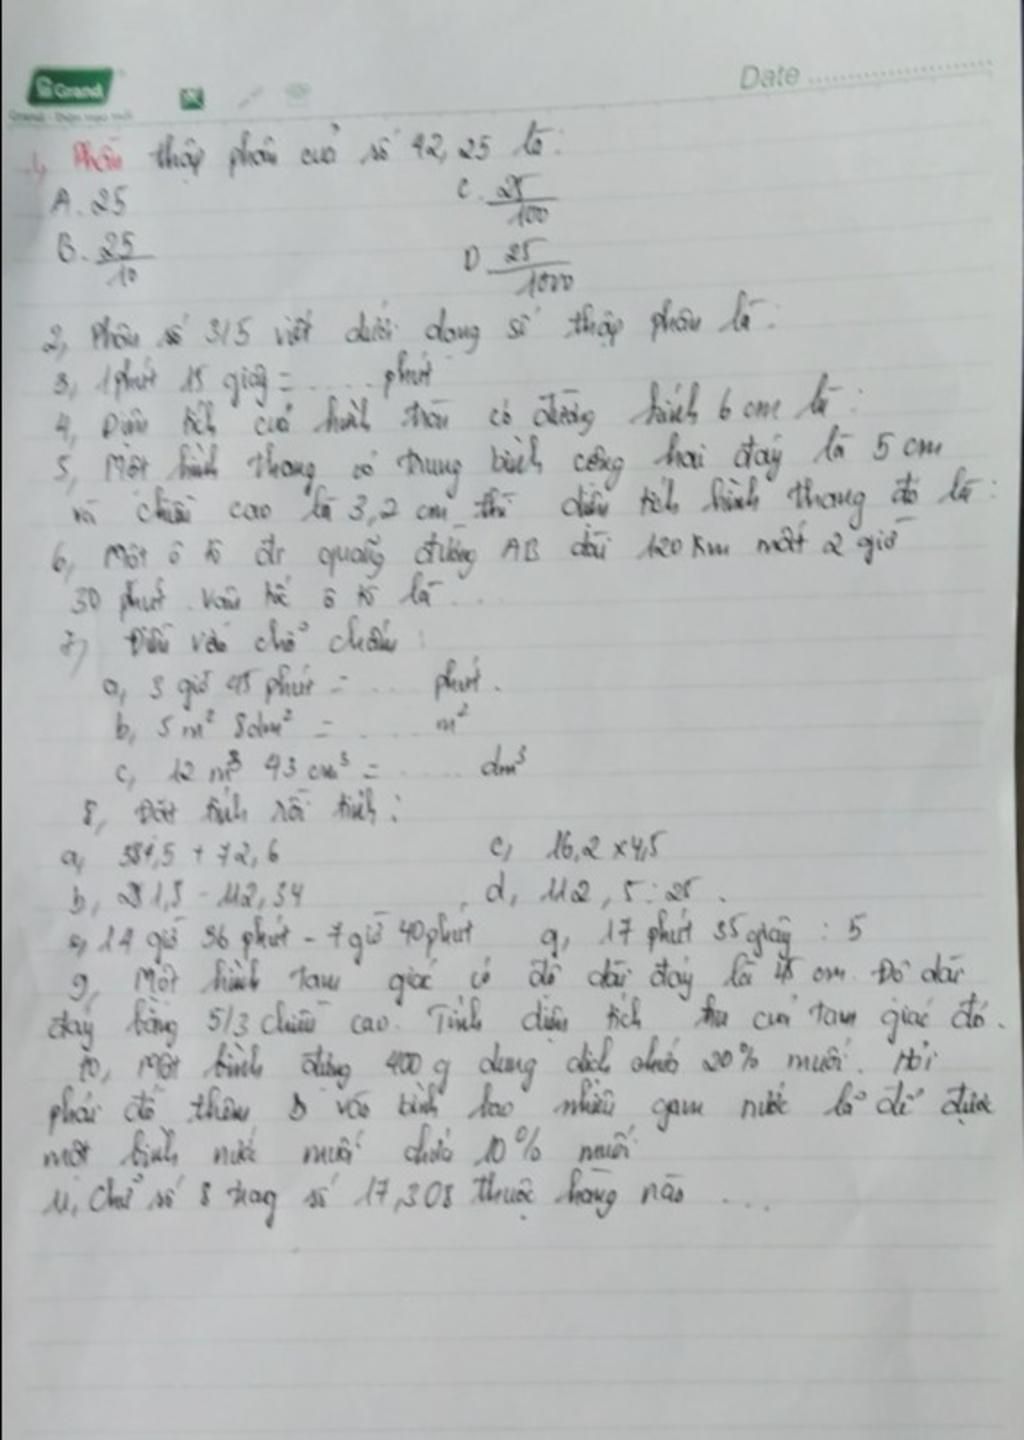 Grand
Date
1, Phần thập phân của số 42,25 là:
A. 25
C. 25/100
B. 25/10
D 25/1000
2, Phân số 3/5 viết dưới dạng số thập phân là:
3, 1 phút 15 giây = ..... phút
4, Diện tích của hình tròn có đường kính 6 cm là:
5, Một hình thang có trung bình cộng hai đáy là 5 cm
và chiều cao là 3,2 cm thì diện tích hình thang đó là:
6, Một ô tô đi quãng đường AB dài 120 Km mất 2 giờ
30 phút. Vận tốc ô tô là ...
7, Điền vào chỗ chấm:
a, 3 giờ 45 phút = ... phút.
b, 5 m² 8dm² = ..... m²
c, 12 m³ 43 cm³ = ..... dm³
8, Đặt tính rồi tính:
a, ,5 + 72,6
c, 16,2 x 4,5
b, - 112,34
d, 112,5 : 25.
14 giờ 36 phút - 7 giờ 40 phút
g, 17 phút 35 giây : 5
9, Một hình tam giác có độ dài đáy là 45 cm. Độ dài
đáy bằng 5/3 chiều cao. Tính diện tích của tam giác đó.
10, Một bình đựng 400 g dung dịch chứa 20% muối. Hỏi
phải đổ thêm vào bình bao nhiêu gam nước lã để được
một bình nước muối chứa 10% muối
11, Chữ số 8 trong số 17,308 thuộc hàng nào ...